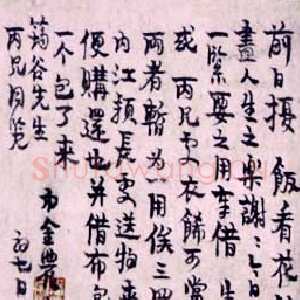 前日擾飯看花
盡人生之樂謝謝今日
一緊要之用奉借
或丙兄更衣餙可當
兩者暫為一用俟三四
內江頴長更送物來
便購還也并借布包
一个包了来
筠谷先生
丙兄同覽
弟金農
初七日